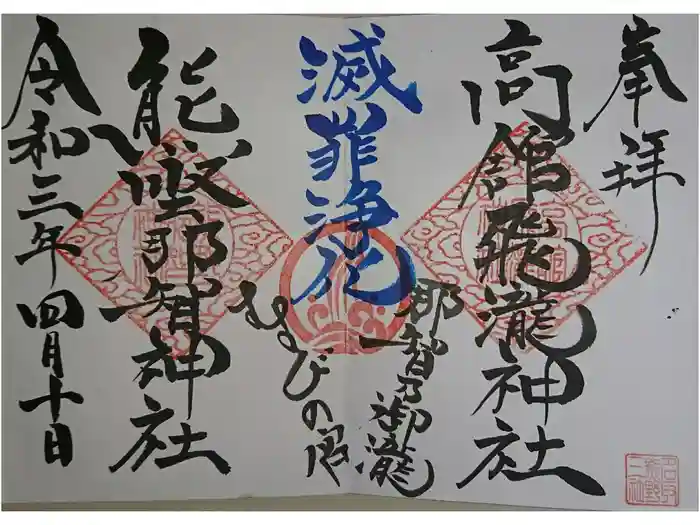 奉拝
高舘飛瀧神社
那智乃御瀧
滅罪浄化
むすびの宮
熊野那智神社
令和三年四月十日